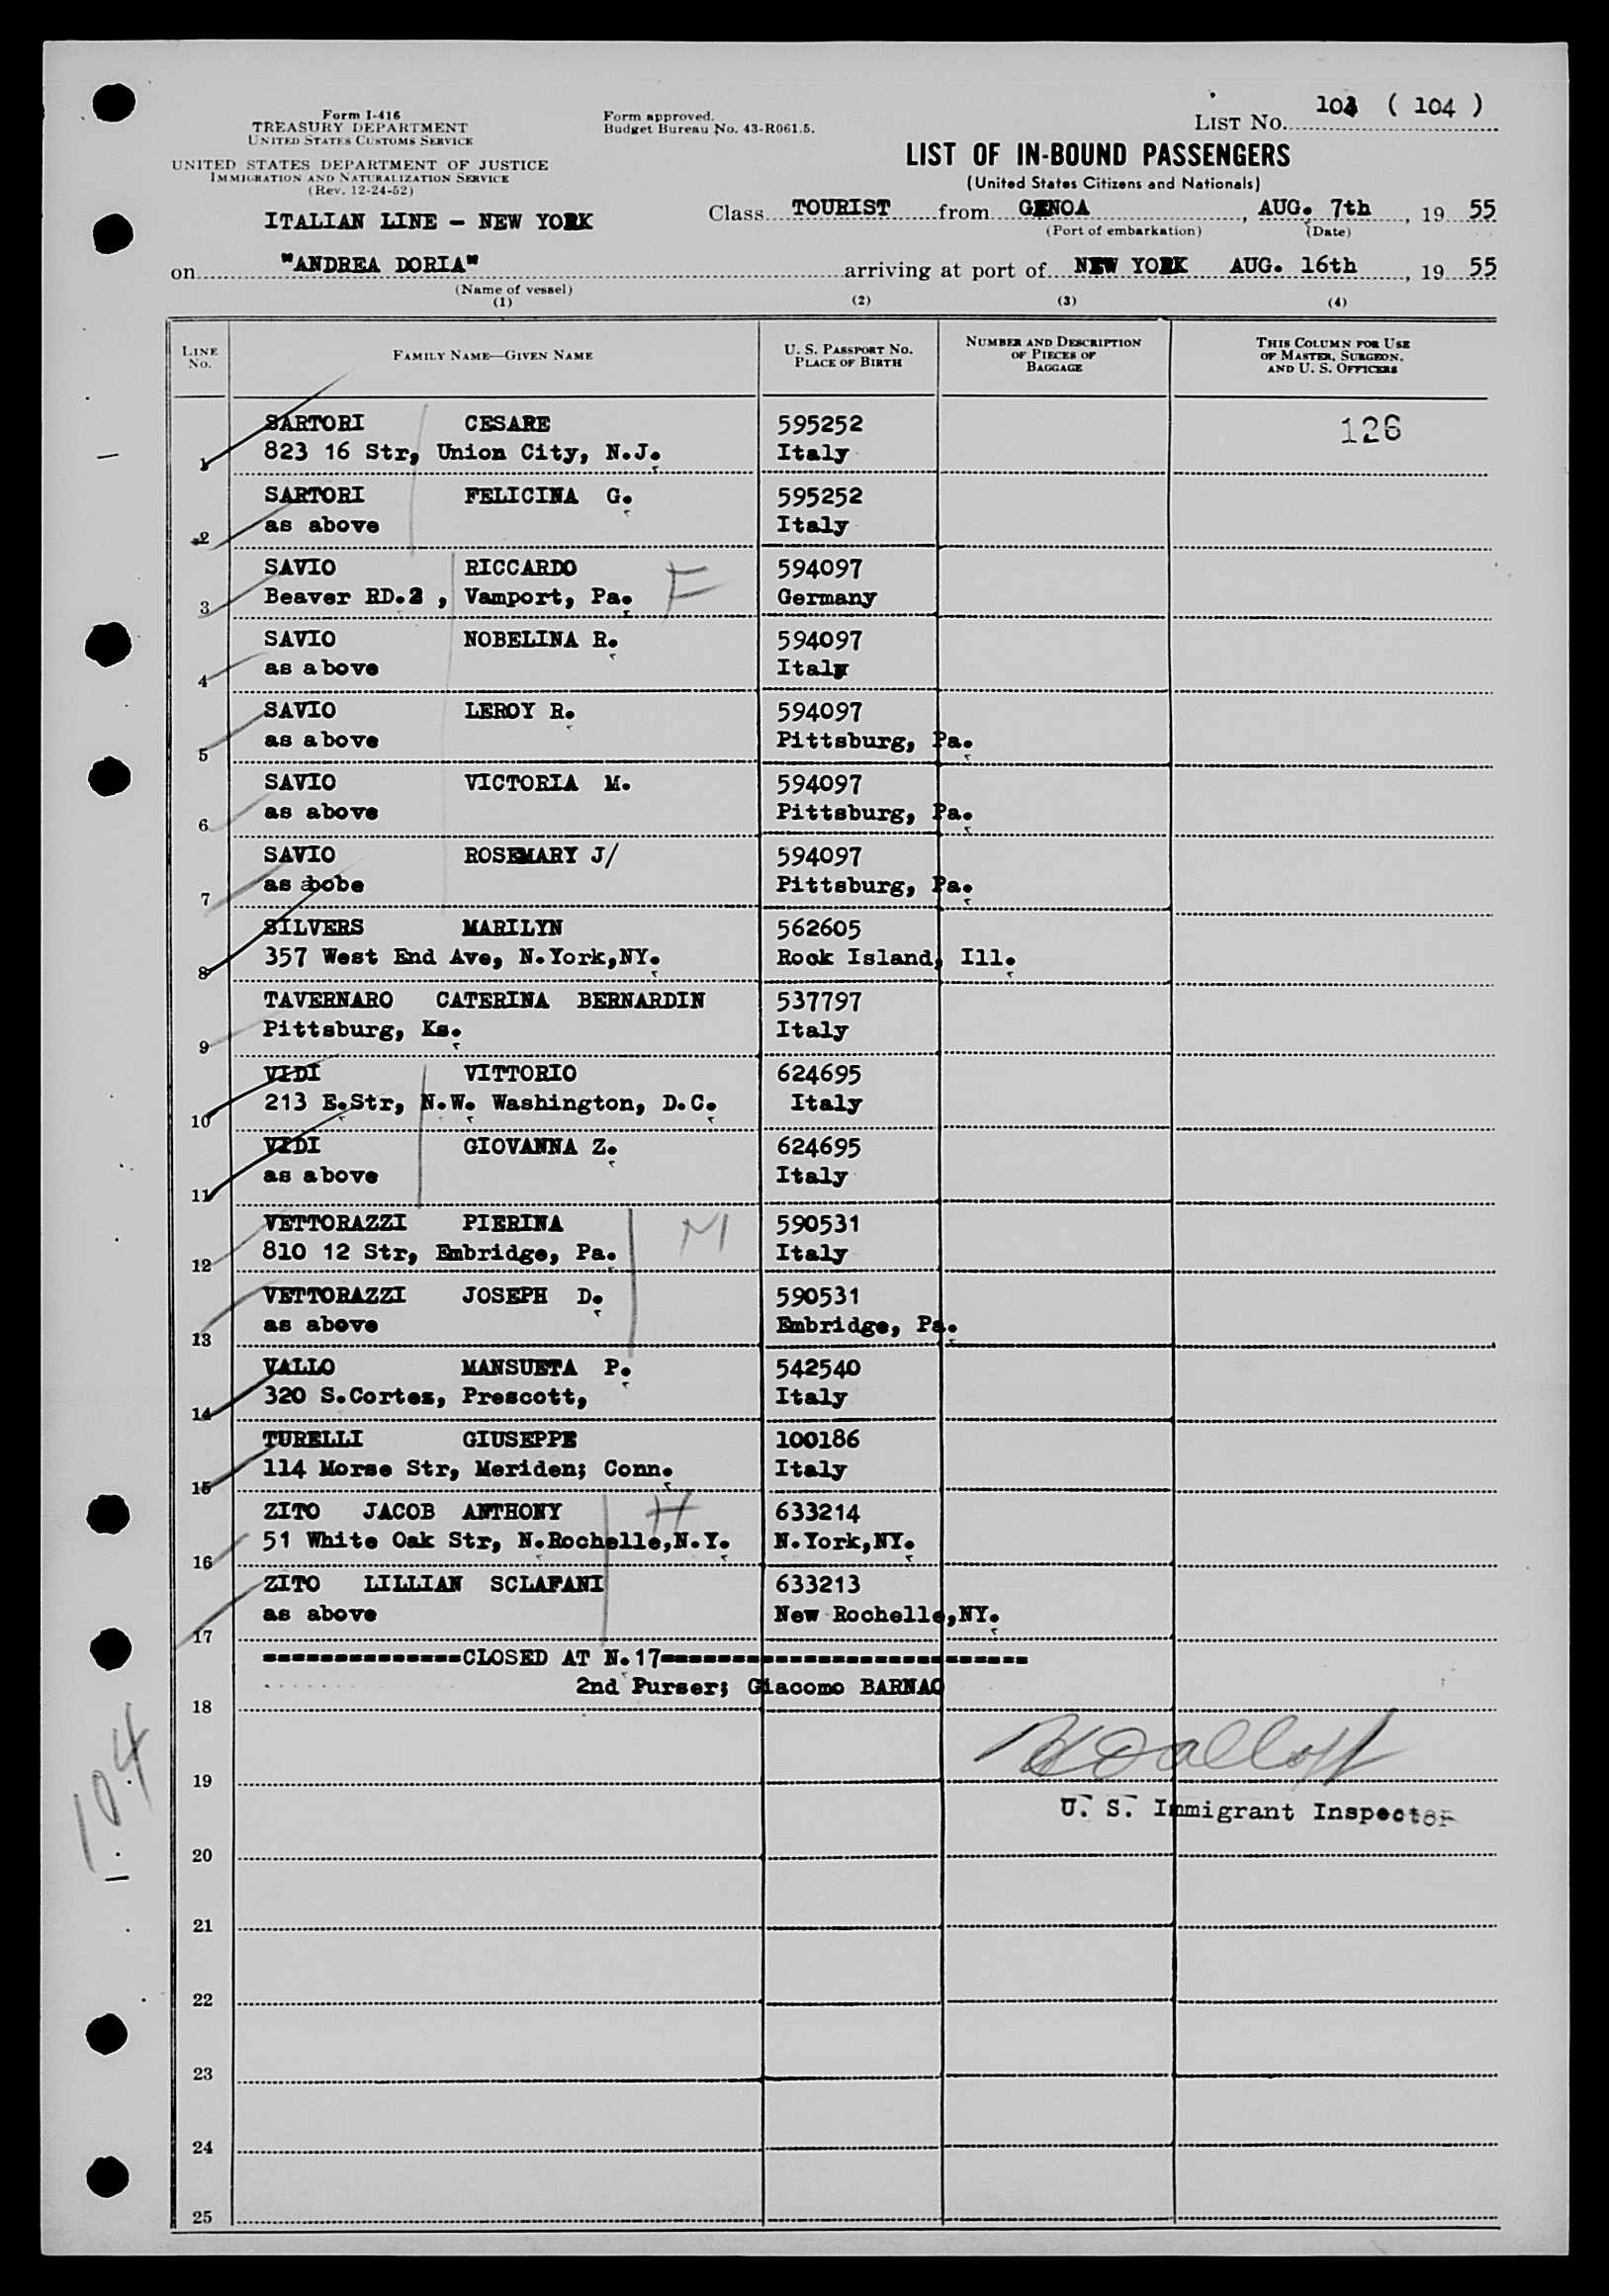 Form I-416
TREASURY DEPARTMENT
UNITED STATES CUSTOMS SERVICE
UNITED STATES DEPARTMENT OF JUSTICE
IMMIGRATION AND NATURALIZATION SERVICE
(Rev. 12-24-52)
Form approved.
Budget Bureau No. 43-R061.5.
LIST No. 103 ( 104 )
LIST OF IN-BOUND PASSENGERS
(United States Citizens and Nationals)
ITALIAN LINE - NEW YORK
Class TOURIST from GENOA, AUG. 7th, 19 55
(Port of embarkation) (Date)
on "ANDREA DORIA" arriving at port of NEW YORK AUG. 16th, 19 55
(Name of vessel)
(1) (2) (3) (4)
LINE No. FAMILY NAME—GIVEN NAME U. S. PASSPORT NO. PLACE OF BIRTH NUMBER AND DESCRIPTION OF PIECES OF BAGGAGE THIS COLUMN FOR USE OF MASTER, SURGEON, AND U. S. OFFICERS
SARTORI CESARE 595252 126
1 823 16 Str, Union City, N.J. Italy
SARTORI FELICINA G. 595252
2 as above Italy
SAVIO RICCARDO F 594097
3 Beaver RD.2 , Vamport, Pa. Germany
SAVIO NOBELINA R. 594097
4 as above Italy
SAVIO LEROY R. 594097
5 as above Pittsburg, Pa.
SAVIO VICTORIA M. 594097
6 as above Pittsburg, Pa.
SAVIO ROSEMARY J/ 594097
7 as abobe Pittsburg, Pa.
SILVERS MARILYN 562605
8 357 West End Ave, N.York,NY. Rock Island, Ill.
TAVERNARO CATERINA BERNARDIN 537797
9 Pittsburg, Ks. Italy
VIDI VITTORIO 624695
10 213 E.Str, N.W. Washington, D.C. Italy
VIDI GIOVANNA Z. 624695
11 as above Italy
VETTORAZZI PIERINA M 590531
12 810 12 Str, Embridge, Pa. Italy
VETTORAZZI JOSEPH D. 590531
13 as above Embridge, Pa.
VALLO MANSUETA P. 542540
14 320 S.Cortez, Prescott, Italy
TURELLI GIUSEPPE 100186
15 114 Morse Str, Meriden; Conn. Italy
ZITO JACOB ANTHONY H 633214
16 51 White Oak Str, N.Rochelle,N.Y. N.York,NY.
ZITO LILLIAN SCLAFANI 633213
17 as above New Rochelle,NY.
==============CLOSED AT N.17==========================
2nd Purser; Giacomo BARNAO
18
19
U. S. Immigrant Inspector
104
20
21
22
23
24
25